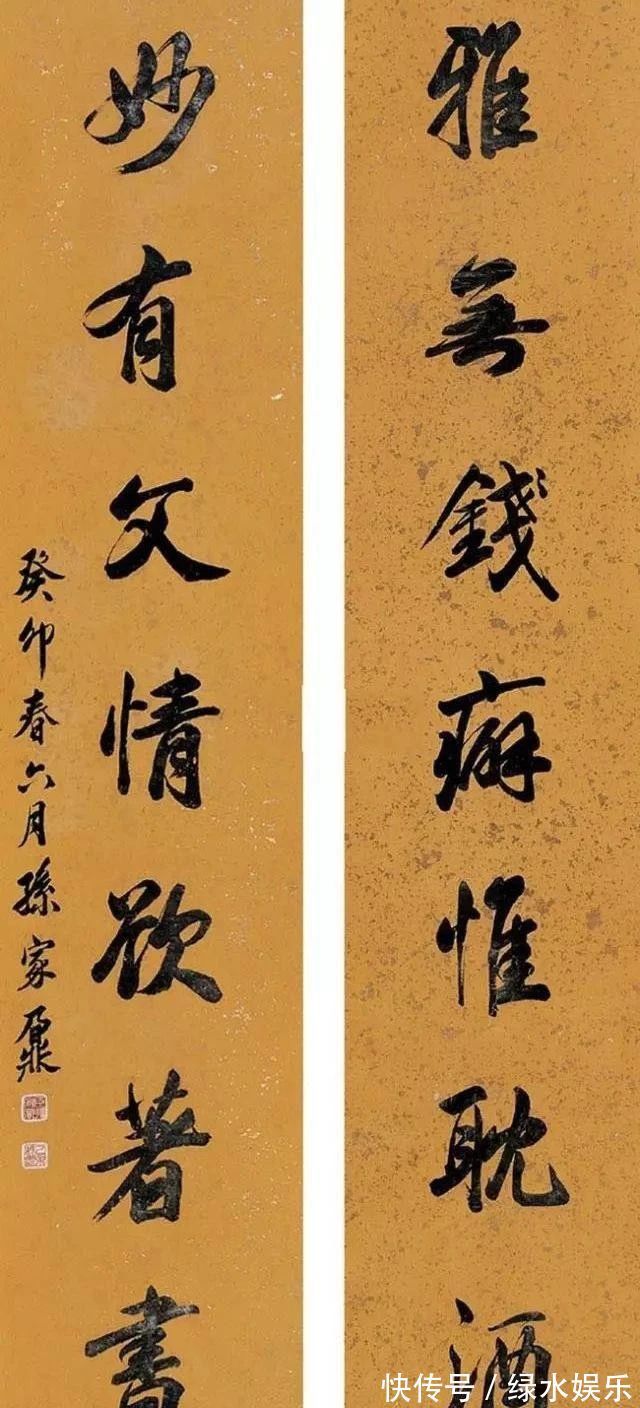 雅無錢癖惟耽酒
妙有文情欲著書
癸卯春六月孫家鼐
快传号/绿水娱乐